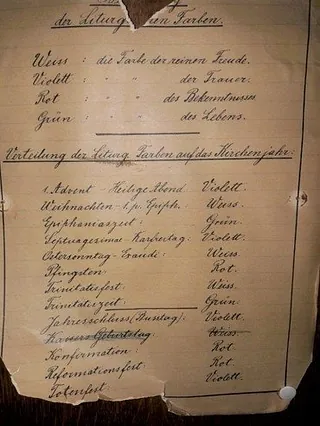 der Liturgischen Farben.
Weiss : die Farbe der reinen Freude.
Violett : " " der Trauer.
Rot : " " des Bekenntnisses.
Grün : " " des Lebens.
Verteilung der Liturg. Farben auf das Kirchenjahr:
1. Advent - Heilige Abend Violett.
Weihnachten - 1. p. Epiph. Weiss.
Epiphaniaszeit: Grün.
Septuagesimae - Karfreitag: Violett.
Ostersonntag - Exaudi: Weiss
Pfingsten: Rot.
Trinitatisfest: Weiss.
Trinitatiszeit: Grün
Jahresschluss (Busstag): Violett.
Kaisers Geburtstag: Weiss
Konfirmation: Rot
Reformationsfest: Rot
Totenfest: Violett.